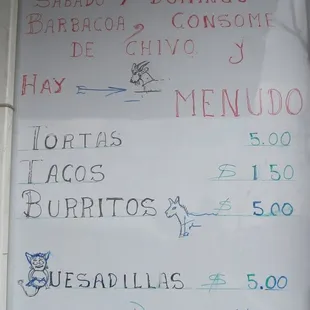 SABADO Y DOMINGO
BARBACOA, CONSOME
DE CHIVO Y
HAY
MENUDO
TORTAS 5.00
TACOS $ 1 50
BURRITOS $ 5.00
QUESADILLAS $ 5.00